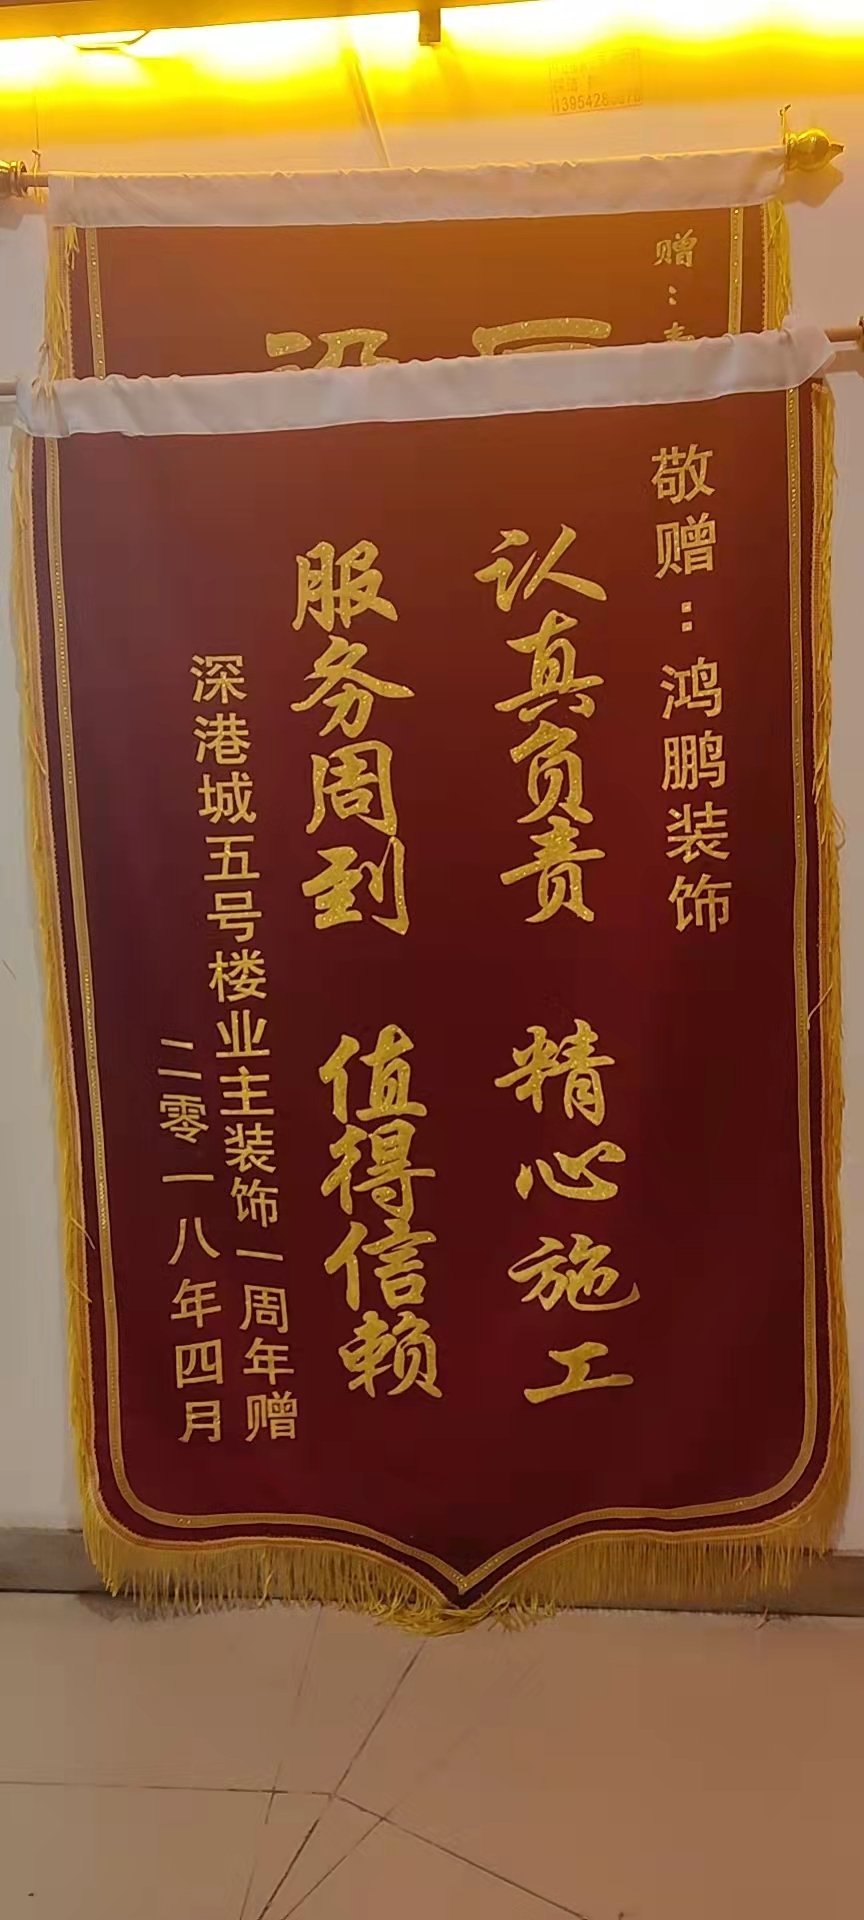 赠：
敬赠：鸿鹏装饰
认真负责 精心施工
服务周到 值得信赖
深港城五号楼业主装饰一周年赠
二零一八年四月